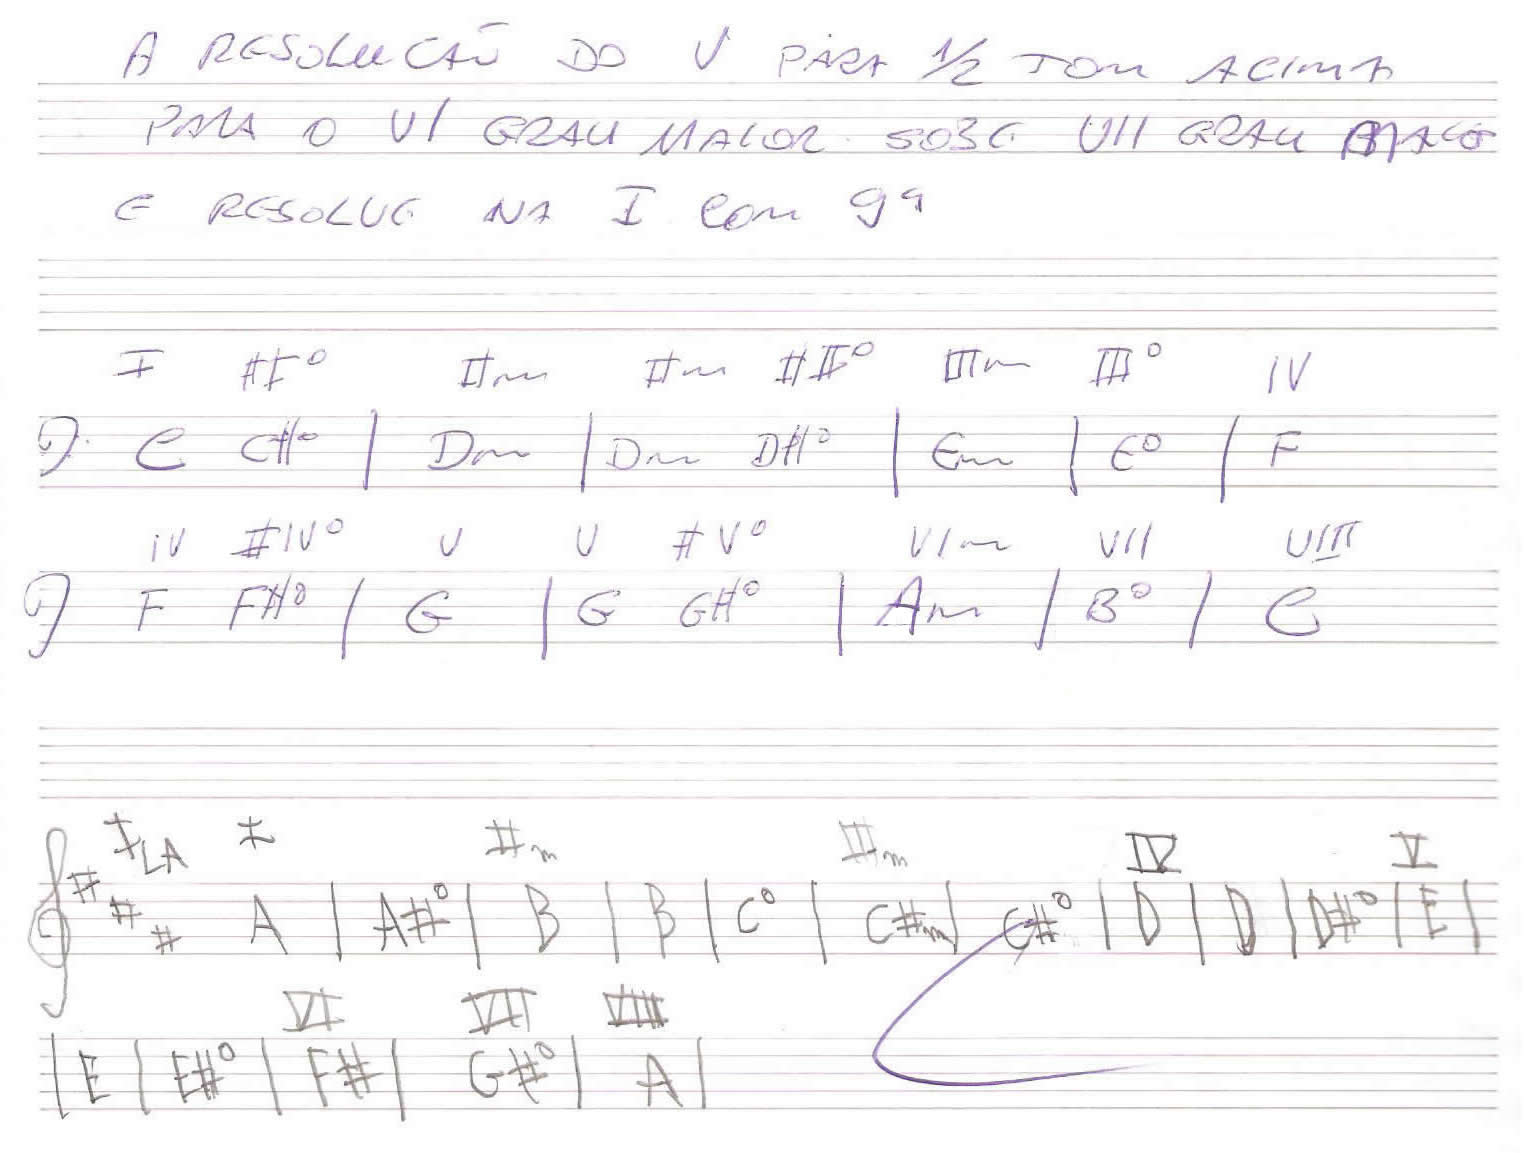 A RESOLUÇÃO DO V PARA 1/2 TOM ACIMA
PARA O VI GRAU MAIOR. SOBE VII GRAU
E RESOLVE NA I COM 9ª
I #I° IIm IIm #II° IIIm III° IV
C C#° | Dm | Dm D#° | Em | E° | F
IV #IV° V V #V° VIm VII VIII
F F#° | G | G G#° | Am | B° | C
I LA I IIm IIIm IV V
# # # A | A#° | B | B | C° | C#m | C#° | D | D | D#° | E |
VI VII VIII
| E | E#° | F# | G#° | A |